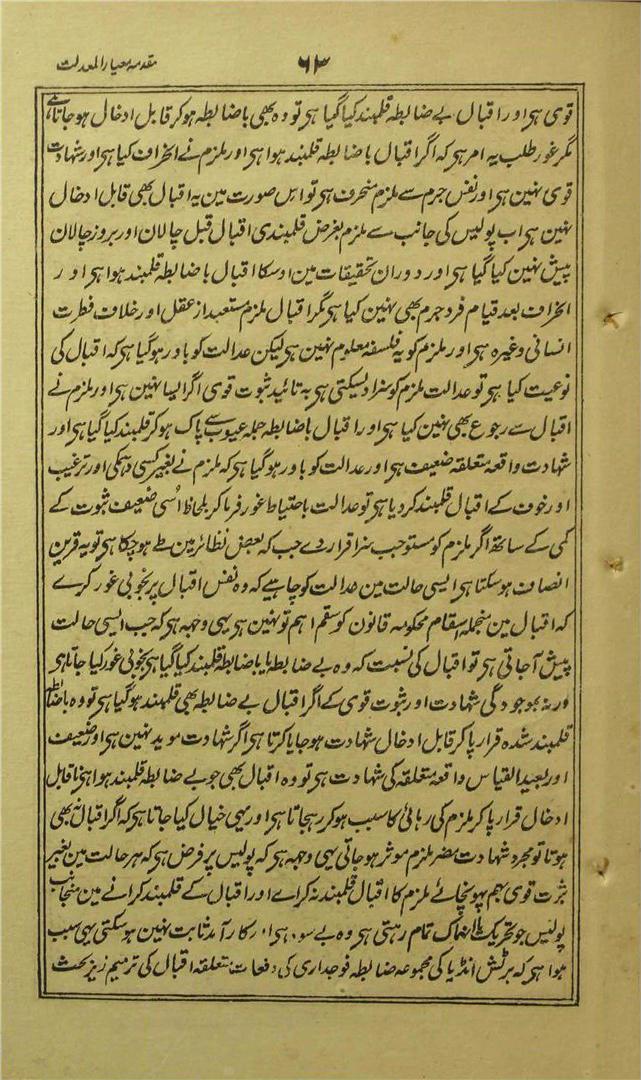 مقدمہ معیار المعدلت
۶۳
قوی ہی اور اقبال بے ضابطہ قلمبند کیا گیا ہی تو وہ بھی باضابطہ ہو کر قابل ادخال ہو جاتا ہے
مگر غور طلب یہ امر ہی کہ اگر اقبال باضابطہ قلمبند ہوا ہی اور ملزم نے انحراف کیا ہی اور شہادت
قوی نہین ہی اور نفس جرم سے ملزم منحرف ہی تو اس صورت مین یہ اقبال بھی قابل ادخال
نہین ہی اب پولیس کی جانب سے ملزم بغرض قلمبندی اقبال قبل چالان اور بروز چالان
پیش نہین کیا گیا ہی اور دوران تحقیقات مین اوسکا اقبال باضابطہ قلمبند ہوا ہی اور
انحراف بعد قیام فرد جرم بھی نہین کیا ہی مگر اقبال ملزم مستبعد از عقل اور خلاف فطرت
انسانی وغیرہ ہی اور ملزم کو یہ فلسفہ معلوم نہین ہی لیکن عدالت کو باور ہو گیا ہی کہ اقبال کی
نوعیت کیا ہی تو عدالت ملزم کو سزا دیسکتی ہی بہ تائید ثبوت قوی اگر ایسا نہین ہی اور ملزم نے
اقبال سے رجوع بھی نہین کیا ہی اور اقبال باضابطہ جملہ عیوب سے پاک ہو کر قلمبند کیا گیا ہی اور
شہادت واقعہ متعلقہ ضعیف ہی اور عدالت کو باور ہو گیا ہی کہ ملزم نے بغیر کسی دہمکی اور ترغیب
اور خوف کے اقبال قلمبند کر دیا ہی تو عدالت باحتیاط غور فرما کر بلحاظ اُسی ضعیف ثبوت کے
کمی کے ساتھ اگر ملزم کو مستوجب سزا قرار دے جب کہ بعض نظائر مین طے ہو چکا ہی تو یہ قرین
انصاف ہو سکتا ہی ایسی حالت مین عدالت کو چاہیے کہ وہ نفس اقبال پر بخوبی غور کرے
کہ اقبال مین منجملہ اسقام محکومہ قانون کو سقم اہم تو نہین ہی یہی وجہہ ہی کہ جب ایسی حالت
پیش آ جاتی ہی تو اقبال کی نسبت کہ وہ بے ضابطہ یا باضابطہ قلمبند کیا گیا ہی بخوبی غور کیا جاتا ہی
ورنہ بموجودگی شہادت اور ثبوت قوی کے اگر اقبال بے ضابطہ بھی قلمبند ہو گیا ہی تو وہ باضابطہ
قلمبند شدہ قرار پا کر قابل ادخال شہادت ہو جایا کرتا ہی اگر شہادت موید نہین ہی اور ضعیف
اور بعید القیاس واقعہ متعلقہ کی شہادت ہی تو وہ اقبال بھی جو بے ضابطہ قلمبند ہوا ہی ناقابل
ادخال قرار پا کر ملزم کی رہائی کا سبب ہو کر رہجاتا ہی اور یہی خیال کیا جاتا ہی کہ اگر اقبال نہ بھی
ہوتا تو مجرد شہادت مضر ملزم موثر ہو جاتی یہی وجہہ ہی کہ پولیس پر فرض ہی کہ ہر حالت مین بغیر
ثبوت قوی بہم پہونچائے ملزم کا اقبال قلمبند نہ کراے اور اقبال کے قلمبند کرانے مین منجانب
پولیس جو تحریک انہماک تمام رہتی ہی وہ بے سود ہی اور کارآمد ثابت نہین ہو سکتی یہی سبب
ہوا ہی کہ برٹش انڈیا کی مجموعہ ضابطہ فوجداری کی دفعات متعلقہ اقبال کی ترمیم زیر بحث